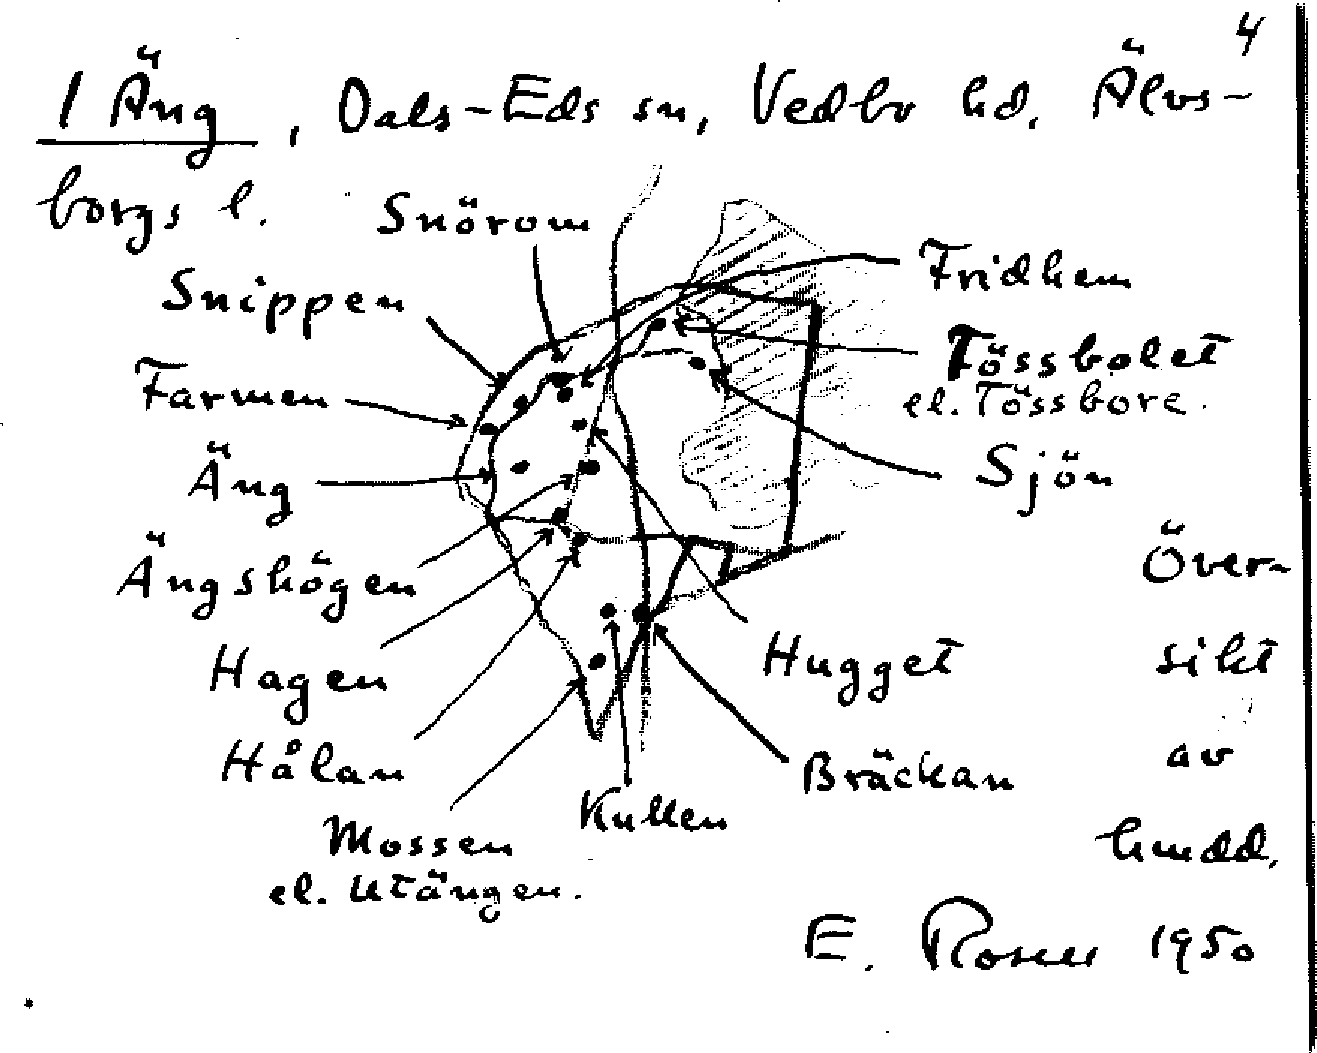 4
1 Äng, Dals-Eds sn, Vedbo hd. Älvs-
borgs l.
Snörom
Snippen
Fridhem
Farmen
Tössbolet
el. Tössbore.
Äng
Sjön
Ängshögen
Över-
Hagen
Hugget
sikt
Hålan
Bräckan
av
Mossen
el. Utängen.
Kullen
hmdd.
E. Rosell 1950